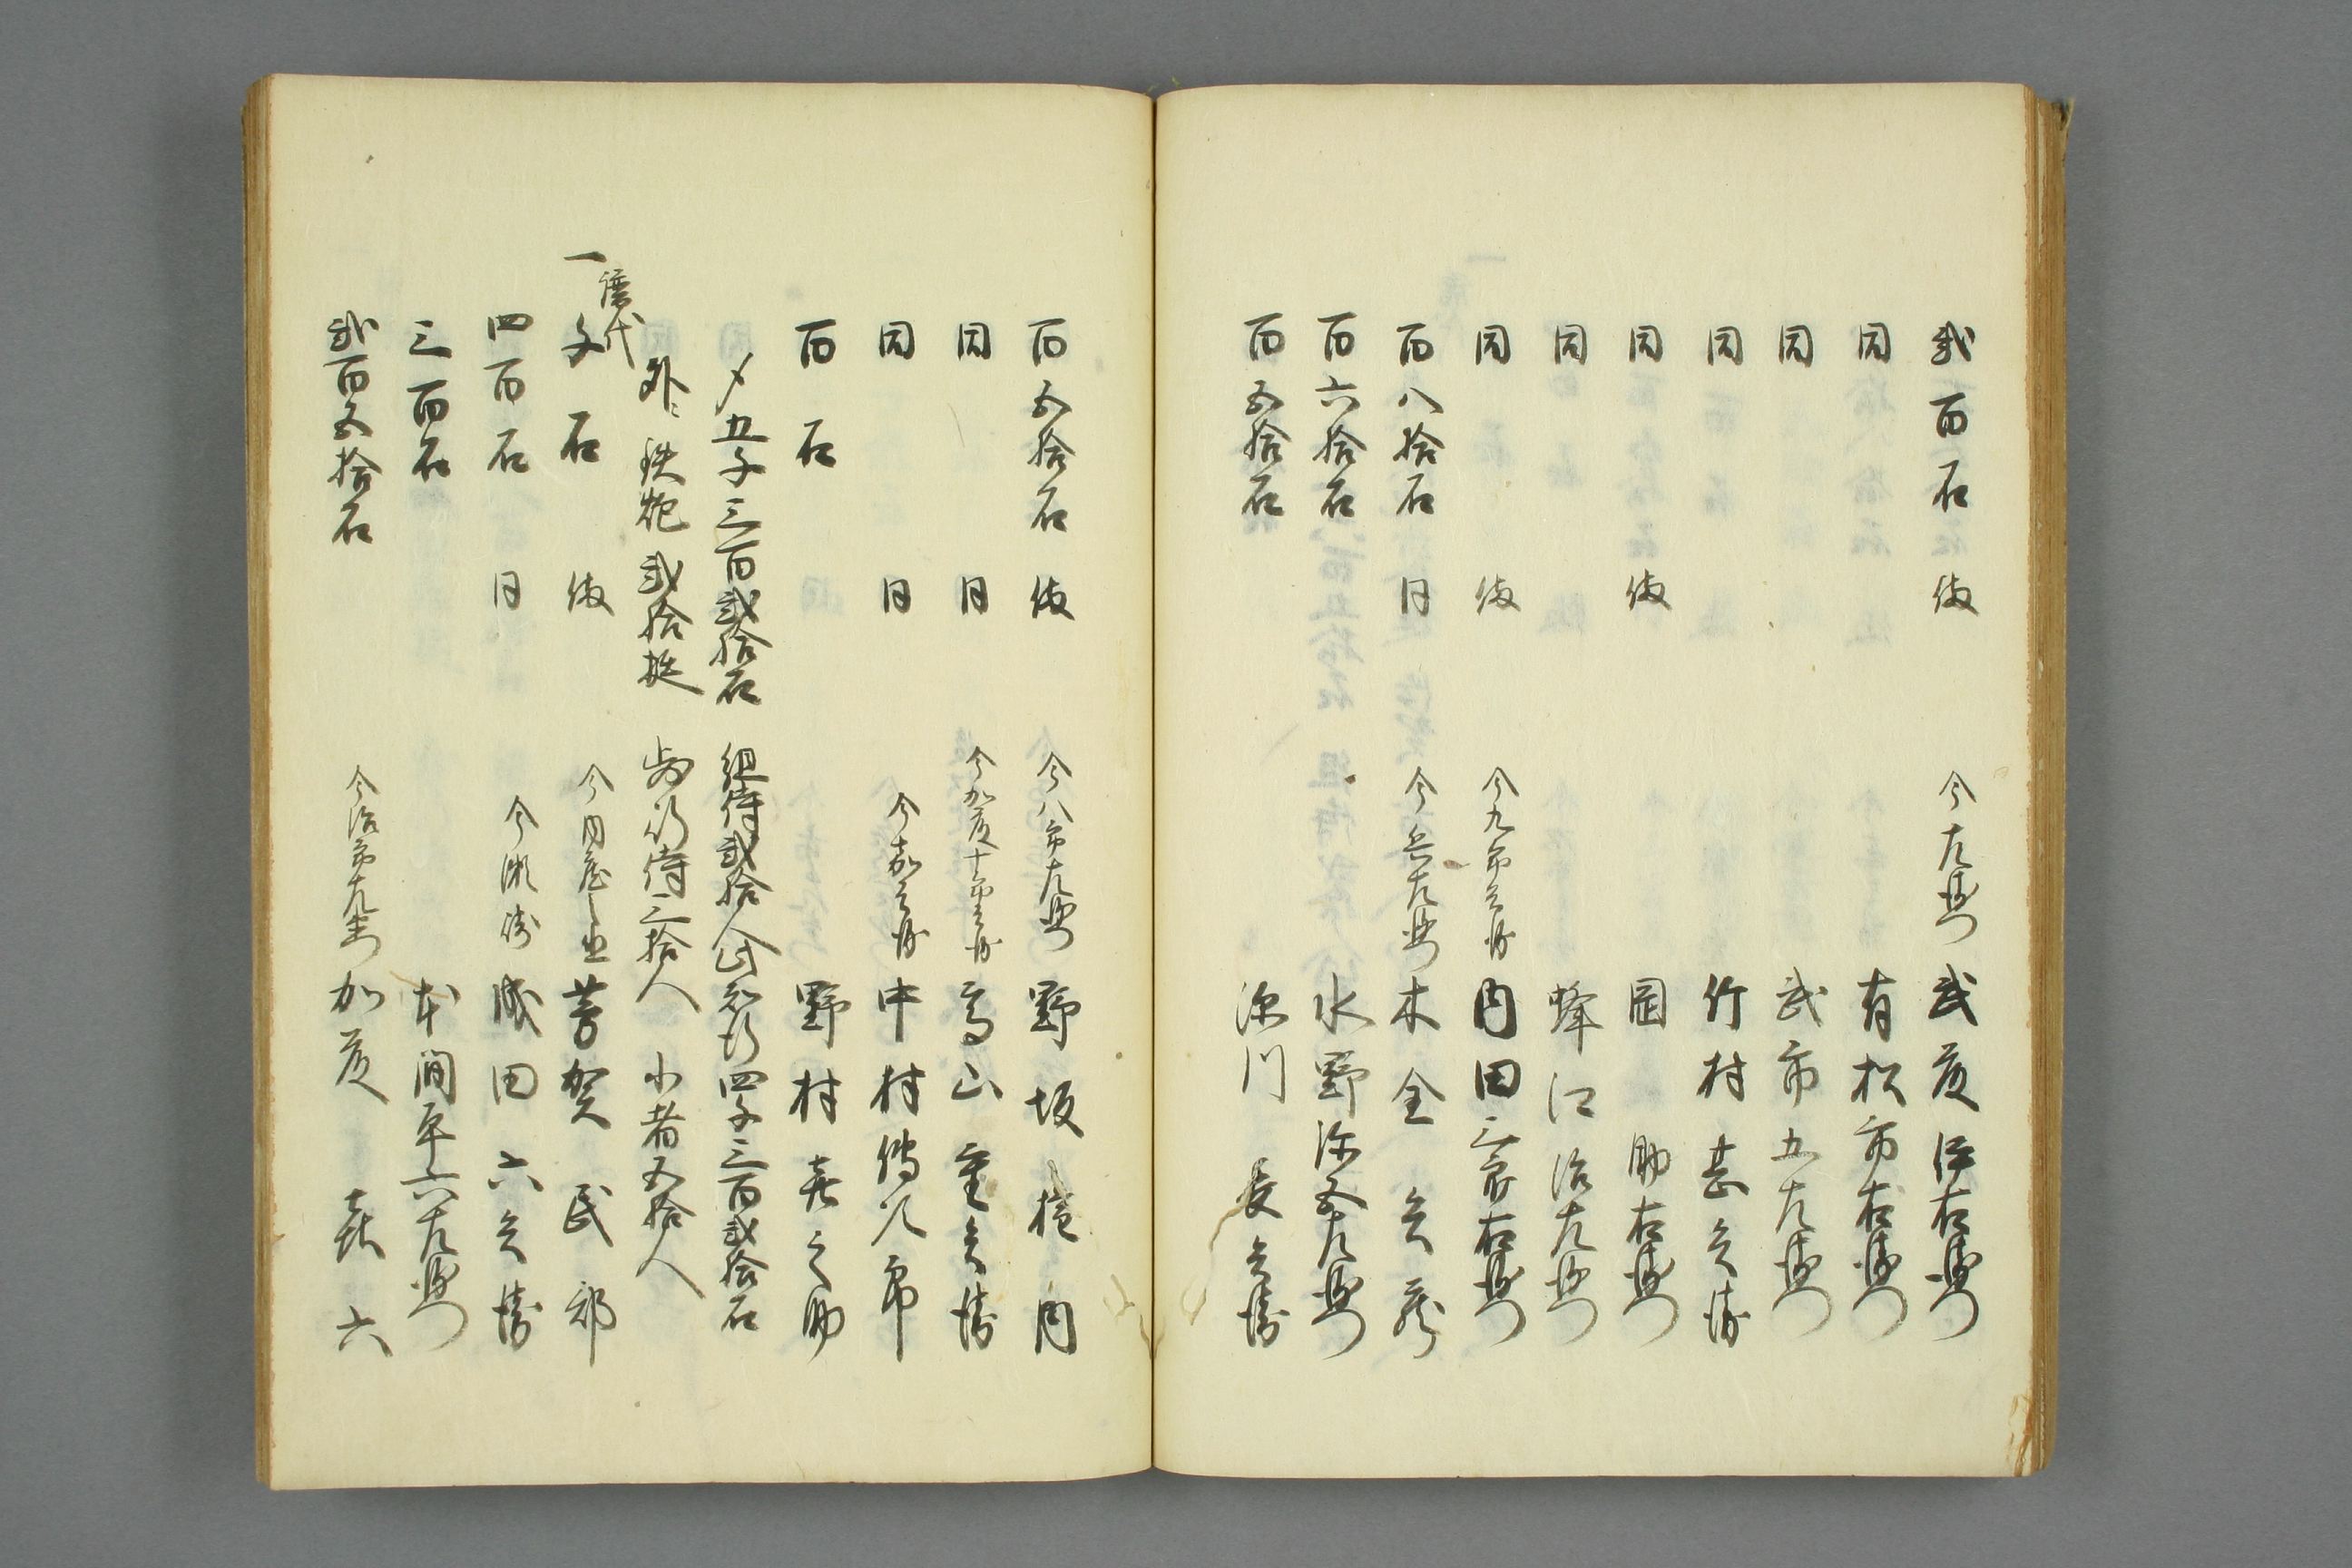 弐百石 後 今左衛門 武度伊右衛門
同 有松市右衛門
同 武市五左衛門
同 竹村甚兵衛
同 後 岡助右衛門
同 蜂江治左衛門
同 後 今九郎兵衛 内田三郎右衛門
百八拾石 同 今兵左衛門 木全兵蔵
百六拾石 水野弥五左衛門
百五拾石 深川長兵衛
百五拾石 後 今八郎左衛門 野坂権内
同 同 今加度十郎兵衛 高山重兵衛
同 同 今嘉兵衛 中村伝次郎
百石 野村喜之助
〆五千三百弐拾石 組侍弐拾人 此知行四千三百弐拾石
外ニ 鉄炮弐拾挺 無足侍三拾人 小者五拾人
一 譜代 千石 後 今内蔵丞 芳賀民部
四百石 同 今 成田六兵衛
三百石 本間平六左衛門
弐百五拾石 今治郎左衛門 加度喜六